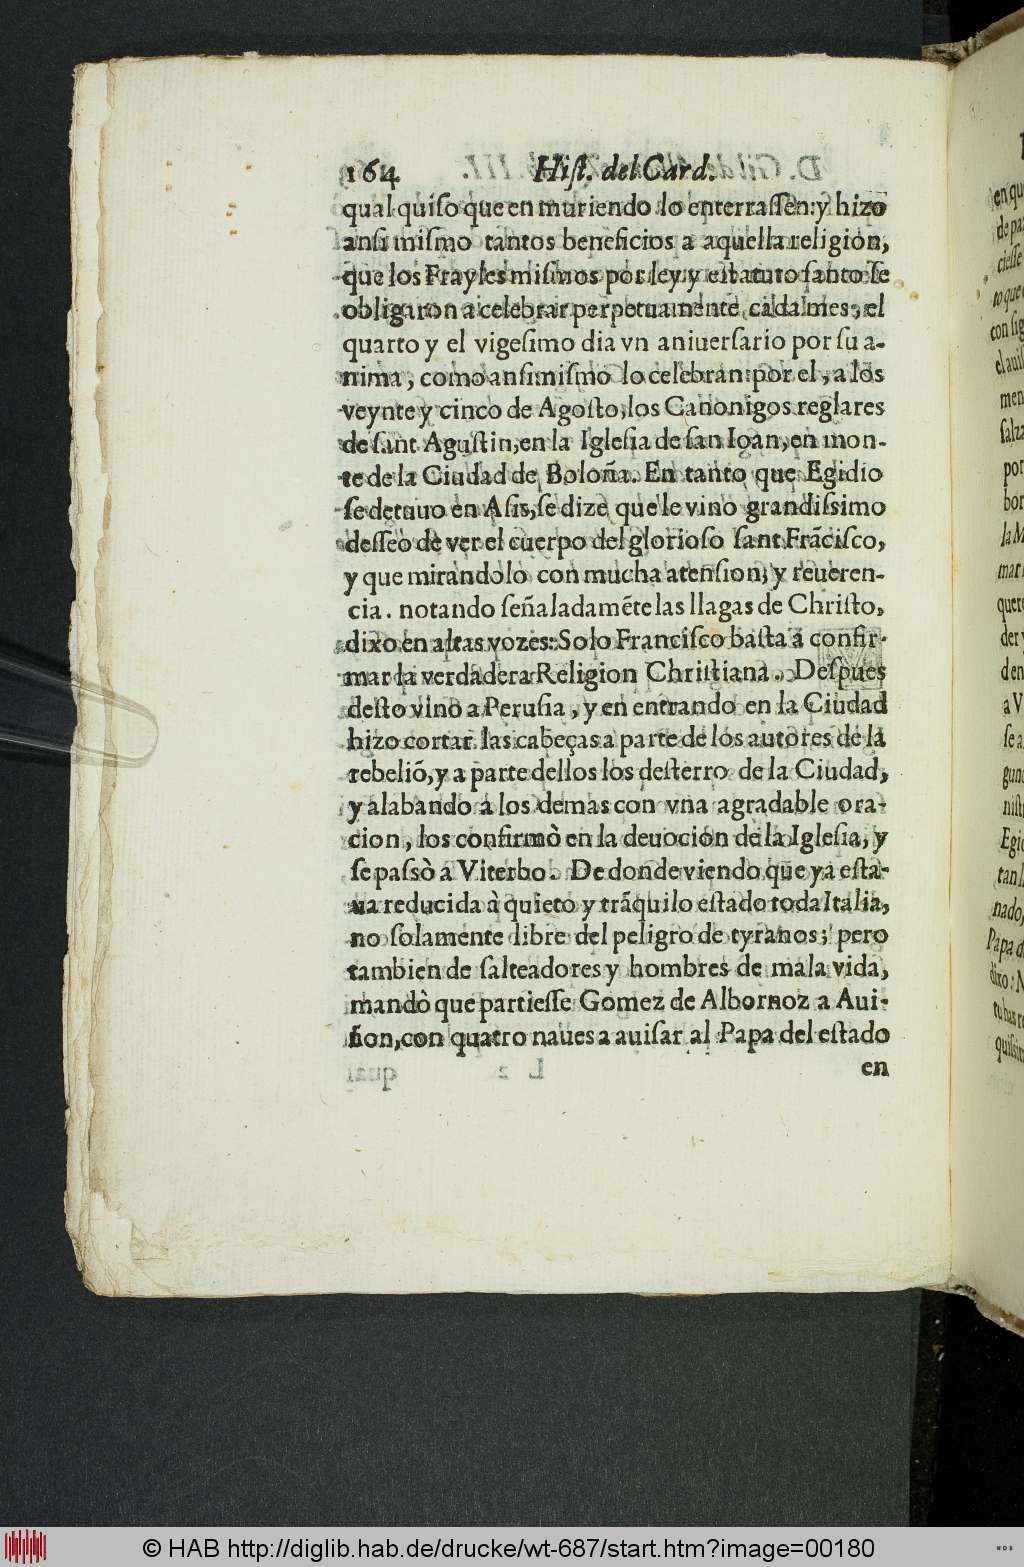 164 Hiſt. del Card.
qual quiſo que en muriendo lo enterraſſen: y hizo
anſi miſmo tantos beneficios a aquella religion,
que los Frayles miſmos por ley y eſtatuto ſanto ſe
obligaron a celebrar perpetuamente cada mes, el
quarto y el vigeſimo dia vn aniuerſario por ſu a-
nima, como anſimiſmo lo celebran por el, a los
veynte y cinco de Agoſto, los Canonigos reglares
de ſant Aguſtin, en la Igleſia de ſan Ioan, en mon-
te de la Ciudad de Boloña. En tanto que Egidio
ſe detuuo en Aſis, ſe dize que le vino grandiſsimo
deſſeo de ver el cuerpo del glorioſo ſant Frãciſco,
y que mirandolo con mucha atenſion, y reueren-
cia. notando ſeñaladamẽte las llagas de Chriſto,
dixo en altas vozes: Solo Franciſco baſta a confir-
mar la verdadera Religion Chriſtiana. Deſpues
deſto vino a Peruſia, y en entrando en la Ciudad
hizo cortar las cabeças a parte de los autores de la
rebeliõ, y a parte dellos los deſterro de la Ciudad,
y alabando a los demas con vna agradable ora-
cion, los confirmò en la deuocion de la Igleſia, y
ſe paſsò a Viterbo. De donde viendo que ya eſta-
ua reducida à quieto y trãquilo eſtado toda Italia,
no ſolamente libre del peligro de tyranos; pero
tambien de ſalteadores y hombres de mala vida,
mandò que partieſſe Gomez de Albornoz a Aui-
ñon, con quatro naues a auiſar al Papa del eſtado
en
en qu
de pa
cieſſe
to que
con ſig
el auiſ
men
ſalza
por
bor
la M
mar
quere
der y
den
a V
ſe a
gund
niſt
Egi
tan l
nado,
Papa d
dixo: N
tu has re
quiſsi
© HAB http://diglib.hab.de/drucke/wt-687/start.htm?image=00180